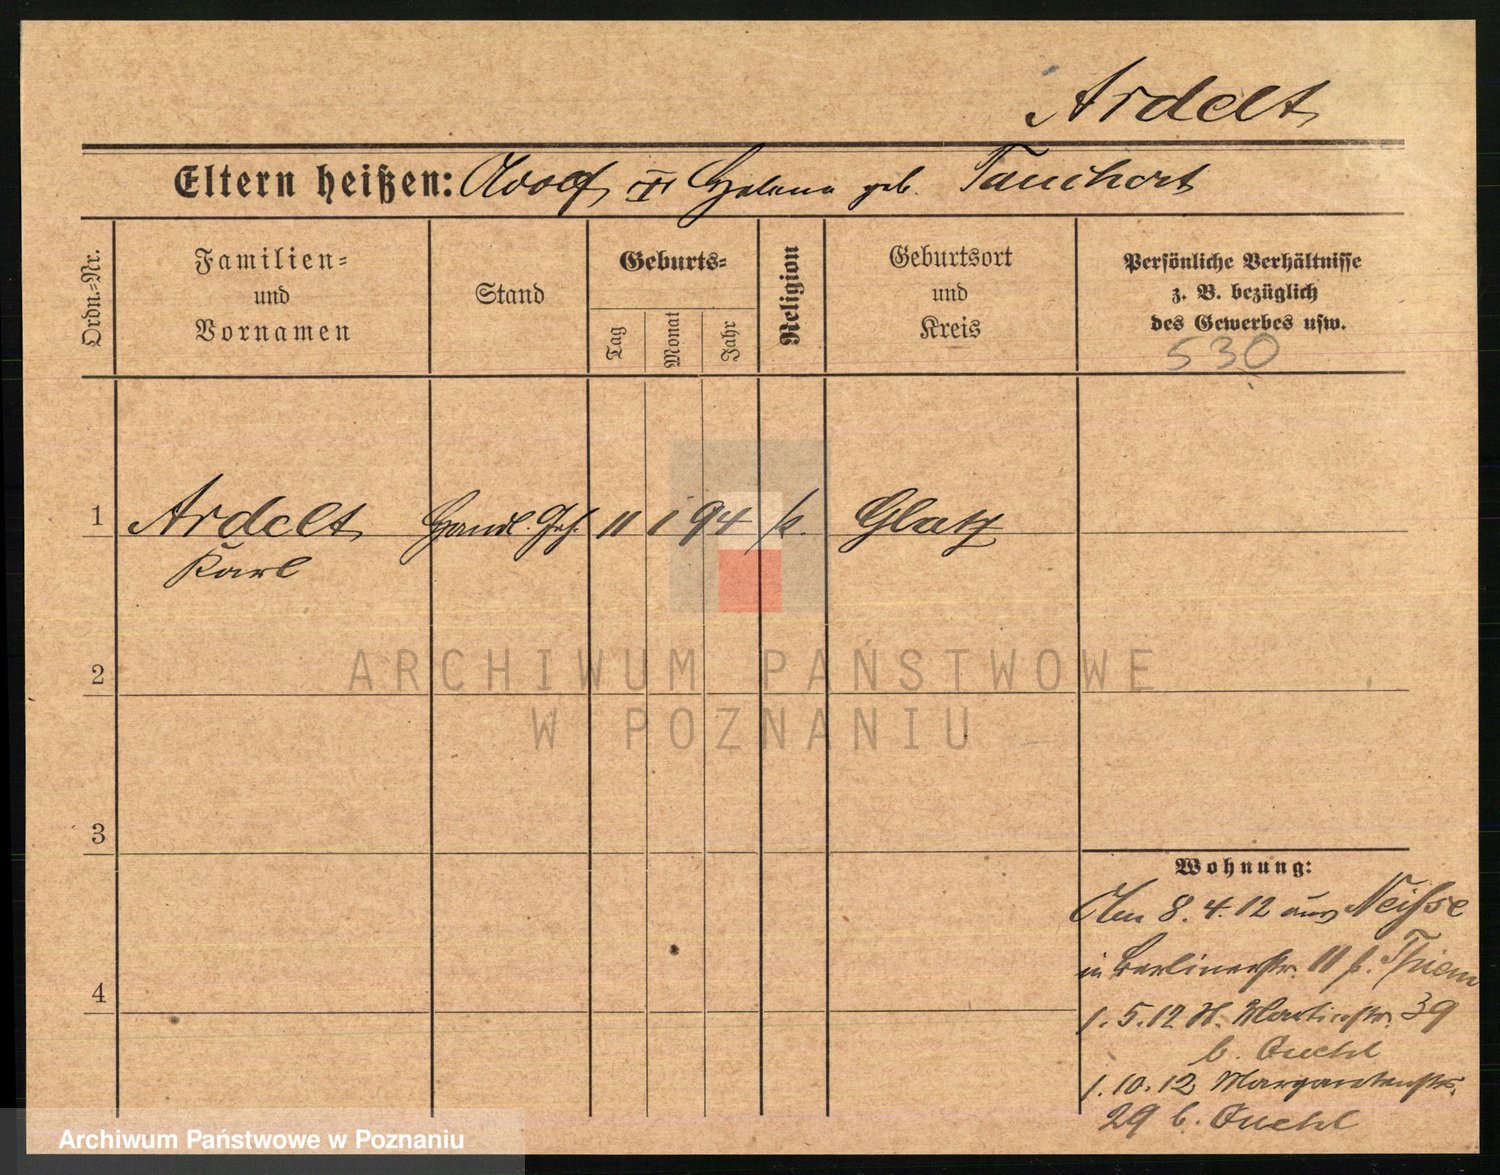 Ardelt
Eltern heißen: Adolf u Helena geb. Tauchert
Ordn.-Nr.
Familien-
und
Vornamen
Stand
Geburts-
Tag
Monat
Jahr
Religion
Geburtsort
und
Kreis
Persönliche Verhältnisse
z. B. bezüglich
des Gewerbes usw.
530
1 Ardelt Handl. Geh. 11 1 94 k. Glatz
Karl
2
3
4
Wohnung:
Am 8. 4. 12 aus Neisse
in Berlinerstr. 11 b. Thiem
1. 5. 12 St. Martinstr. 39
b.
1. 10. 12 Margaretenstr.
29 b.
ARCHIWUM PAŃSTWOWE
W POZNANIU
Archiwum Państwowe w Poznaniu